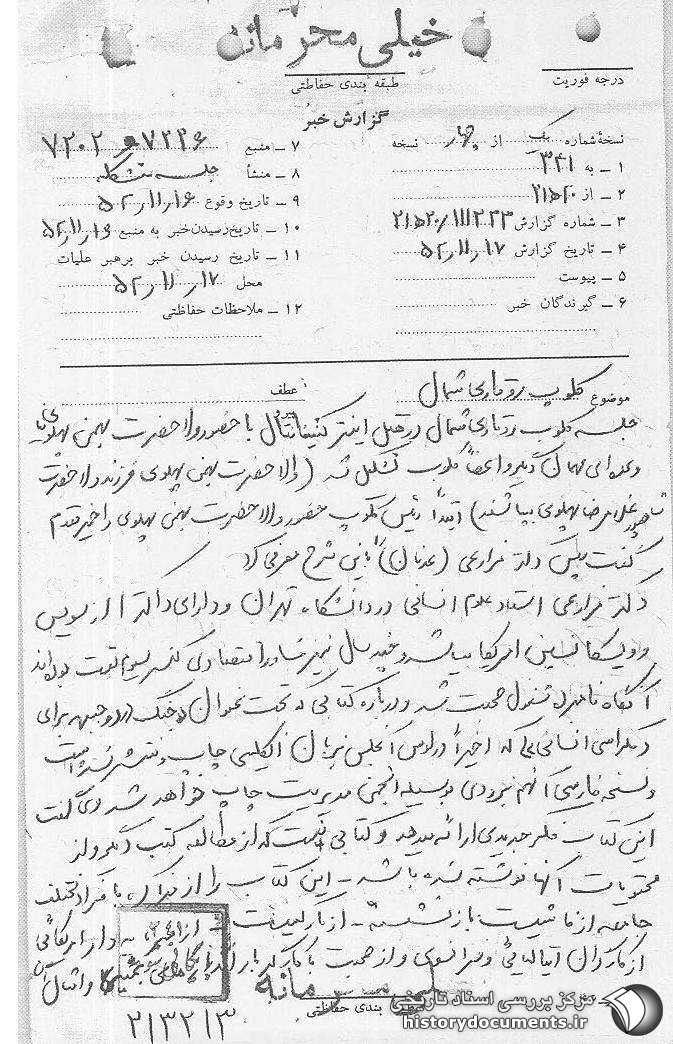 خیلی محرمانه
طبقه بندی حفاظتی
درجه فوریت
گزارش خبر
نسخهٔ شماره یک از چهار نسخه
۱ ـ به ۳۴۱
۲ ـ از ۲۰ﻫ۲۱
۳ ـ شماره گزارش ۱۱۱۲۳۳/۲۰ﻫ۲۱
۴ ـ تاریخ گزارش ۵۲,۱۱,۱۷
۵ ـ پیوست
۶ ـ گیرندگان خبر
۷ ـ منبع ۷۲۳۶ و ۷۲۰۲
۸ ـ منشأ جلسه متشکله
۹ ـ تاریخ وقوع ۵۲,۱۱,۱۶
۱۰ ـ تاریخ رسیدن خبر به منبع ۵۲,۱۱,۱۶
۱۱ ـ تاریخ رسیدن خبر برهبر عملیات
محل ۵۲,۱۱,۱۷
۱۲ ـ ملاحظات حفاظتی
موضوع کلوپ روتاری شمال
عطف
جلسه کلوب روتاری شمال در هتل اینترکنتیننتال با حضور والاحضرت بهمن پهلوی
و عده ای مهمان دیگر و اعضاء کلوب تشکیل شد (والاحضرت بهمن پهلوی فرزند والاحضرت
شاهپور غلامرضا پهلوی میباشند) ابتدا رئیس کلوپ حضور والاحضرت بهمن پهلوی را خیر مقدم
گفت سپس دکتر مزارعی (عدنان) باین شرح معرفی کرد
دکتر مزارعی استاد علوم انسانی در دانشگاه تهران و دارای دکترا از سویس
و ویسکانسین امریکا میباشد و چند سال نیز مشاور اقتصادی کنسرسیوم نفت بوده اند
آنگاه نامبرده شروع صحبت شد و درباره کتابی که تحت عنوان جنگ در دو جبهه برای
دمکراسی انسانی که اخیراً در لوس آنجلس بزبان انگلیسی چاپ و منتشر شده است
و نسخه فارسی آنهم بزودی بوسیله انجمن مدیریت چاپ خواهد شد وی گفت
این کتاب فکر جدیدی ارائه میدهد و کتابی نیست که از مطالعه کتب دیگر و از
محتویات آنها نوشته شده باشد ـ این کتاب را از با افراد مختلف
جامعه از ماشینیست بازنشسته ـ از کارگر امریکائی
از کارگران ایتالیائی و فرانسوی و از صحبت با کارگر و امثال آن
خیلی محرمانه
طبقه بندی حفاظتی
۲۱۳۲۱۳
مرکز بررسی اسناد تاریخی
historydocuments.ir